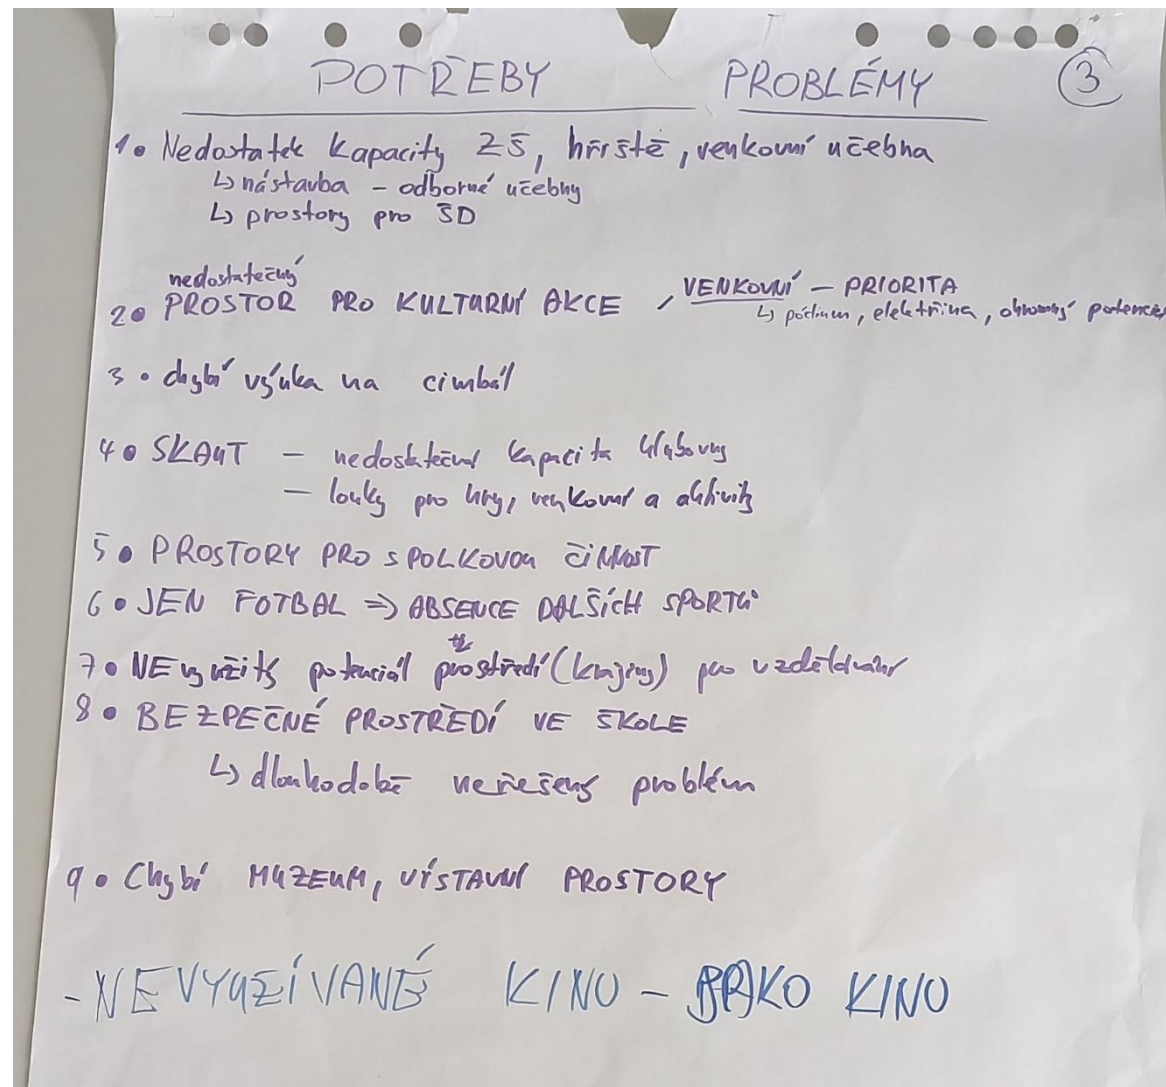 POTŘEBY PROBLÉMY 3
1. Nedostatek kapacity ZŠ, hřiště, venkovní učebna
↳ nástavba - odborné učebny
↳ prostory pro ŠD
nedostatečný
2. PROSTOR PRO KULTURNÍ AKCE / VENKOVNÍ - PRIORITA
↳ pódium, elektřina, ohromný potenciál
3. chybí výuka na cimbál
4. SKAUT - nedostatečná kapacita klubovny
- louky pro hry, venkovní a aktivity
5. PROSTORY PRO SPOLKOVOU ČINNOST
6. JEN FOTBAL => ABSENCE DALŠÍCH SPORTŮ
7. NEvyužitý potenciál prostředí (krajiny) pro vzdělávání
8. BEZPEČNÉ PROSTŘEDÍ VE ŠKOLE
↳ dlouhodobě neřešený problém
9. Chybí MUZEUM, VÝSTAVNÍ PROSTORY
- NEVYUŽÍVANÉ KINO - JAKO KINO